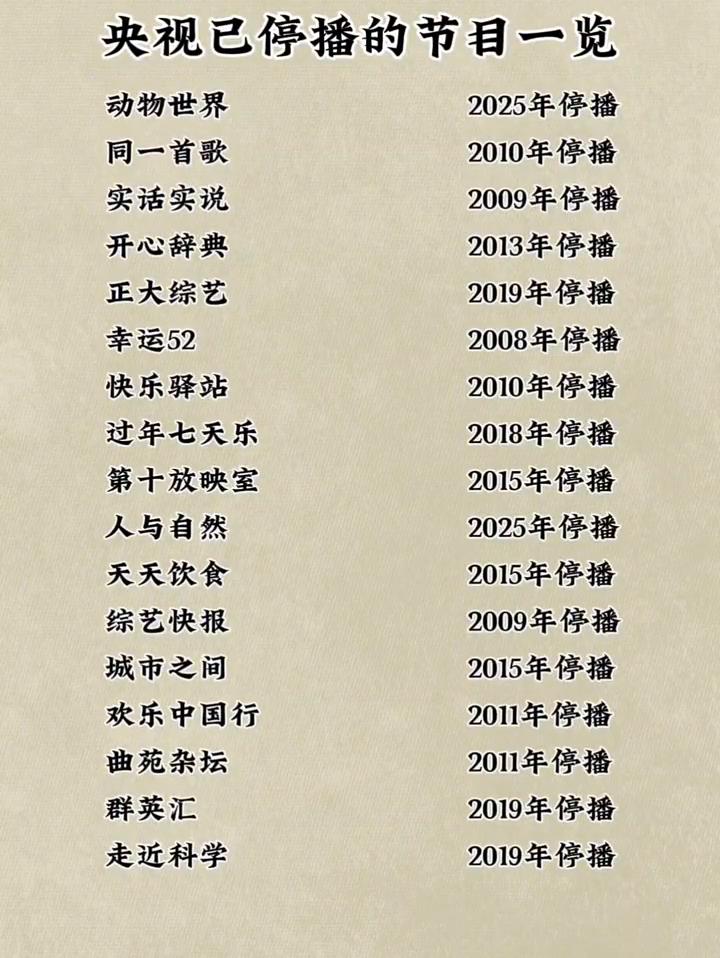 央视已停播的节目一览
动物世界 2025年停播
同一首歌 2010年停播
实话实说 2009年停播
开心辞典 2013年停播
正大综艺 2019年停播
幸运52 2008年停播
快乐驿站 2010年停播
过年七天乐 2018年停播
第十放映室 2015年停播
人与自然 2025年停播
天天饮食 2015年停播
综艺快报 2009年停播
城市之间 2015年停播
欢乐中国行 2011年停播
曲苑杂坛 2011年停播
群英汇 2019年停播
走近科学 2019年停播